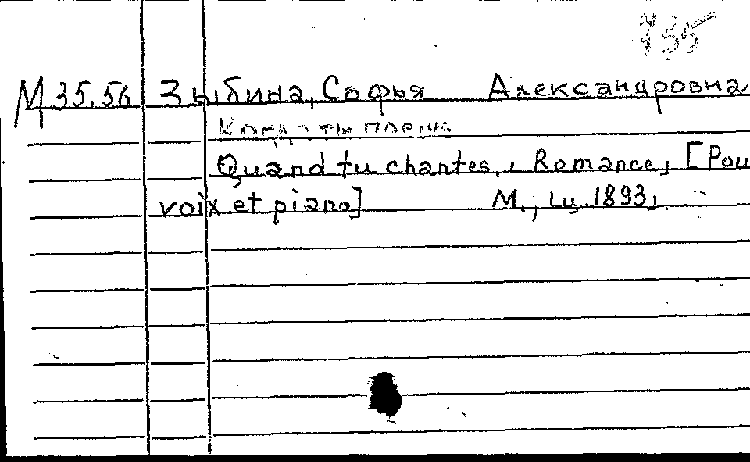 М 35.56 Зыбина, Софья Александровна
Когда ты поешь
Quand tu chantes, Romance, [Pou
voix et piano] М., ц. 1893,